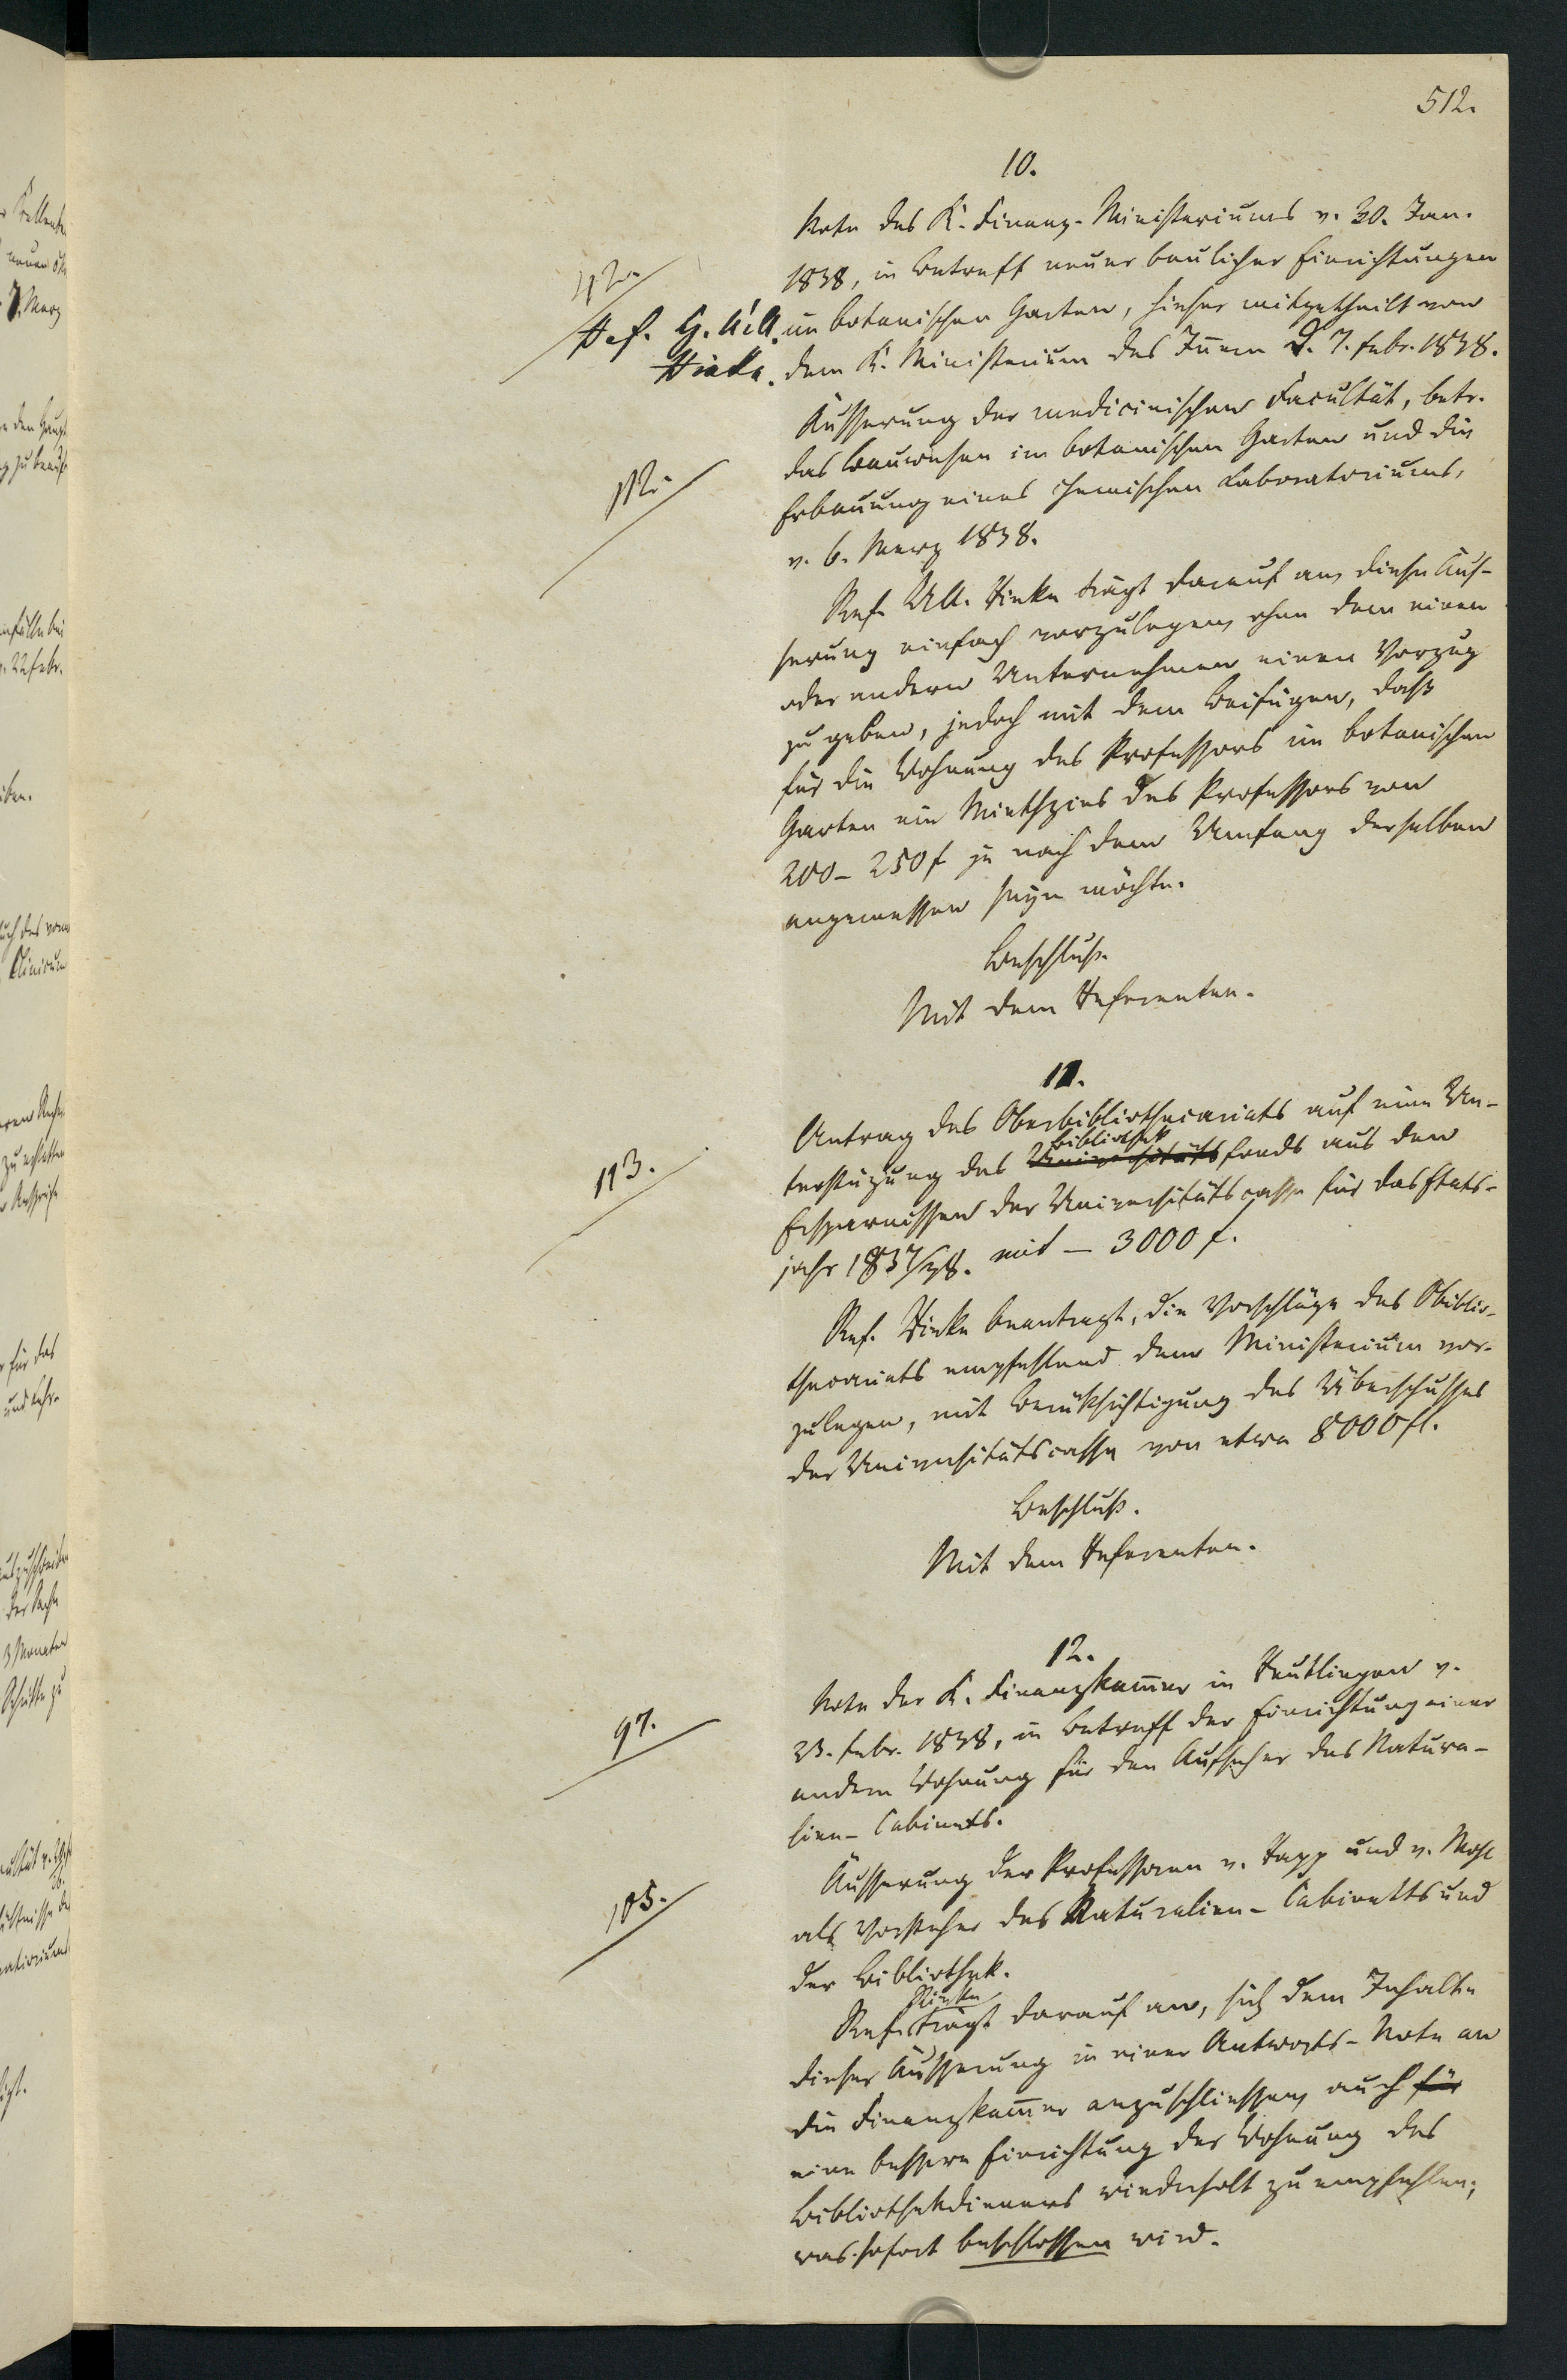 512.
10.
Note des K. Finanz-Ministeriums v. 30. Jan.
1838, in Betreff neuer baulicher Einrichtungen
42.
im botanischen Garten, hieher mitgetheilt von
Ref. G.
dem K. Ministerium des Innern d. 7. Febr. 1838.
Äusserung der medicinischen Facultät, betr.
das Bauwesen im botanischen Garten und die
Erbauung eines chemischen Laboratoriums,
112.
v. 6. Merz 1838.
Ref. trägt darauf an, diese Äus-
serung einfach vorzulegen, ohne dem einen
oder andern Unternehmen einen Vorzug
zu geben, jedoch mit dem Beifügen, daß
für die Wohnung des Professors im botanischen
Garten ein Miethzins des Professors von
200–250 f je nach dem Umfang derselben
angemessen seyn möchte.
Beschluß.
Mit dem Referenten.
11.
Antrag des Oberbibliothecariats auf eine Un-
terstüzung des Universitäts Bibliothek fonds aus den
113.
Ersparnissen der Universitätscasse für das Etats-
jahr 1837/38. mit — 3000 f.
Ref. beantragt, die Vorschläge des Obiblio-
thecariats empfehlend dem Ministerium vor-
zulegen, mit Berüksichtigung des Überschusses
der Universitätscasse von etwa 8000 fl.
Beschluß.
Mit dem Referenten.
12.
Note der K. Finanzkam̅er in Reutlingen v.
97.
23. Febr. 1838, in Betreff der Einrichtung einer
andern Wohnung für den Aufseher des Natura-
lien-Cabinets.
Äusserung der Professoren v. Rapp und v. Mohl
105.
als Vorsteher des Naturalien-Cabinetts und
der Bibliothek.
Ref. trägt darauf an, sich dem Inhalte
dieser Äusserung in einer Antworts-Note an
die Finanzkam̅er anzuschliessen, auch für
eine bessere Einrichtung der Wohnung des
Bibliothekdieners wiederholt zu empfehlen;
was sofort beschlossen wird.